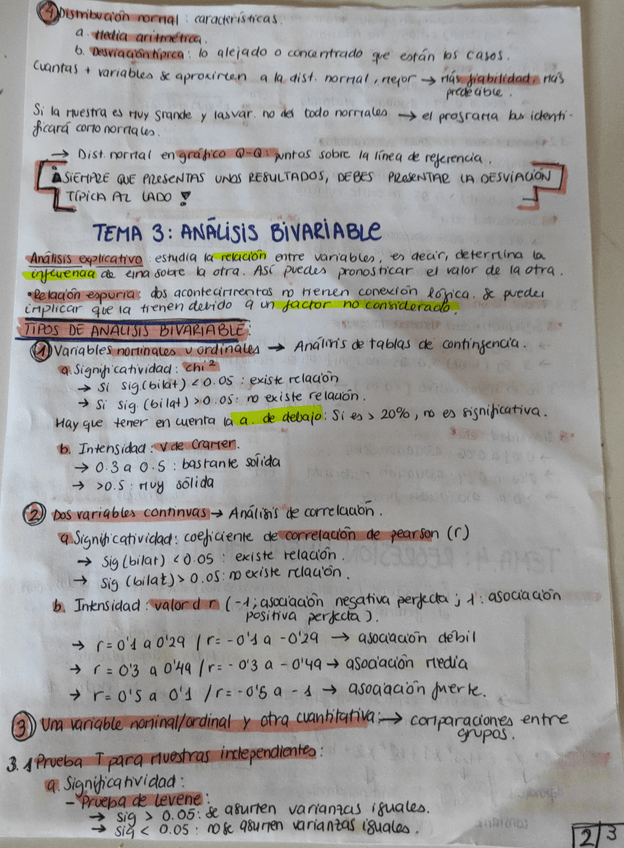 ④ Distribución normal: características.
a. Media aritmética.
b. Desviación típica: lo alejado o concentrado que están los casos.
Cuantas + variables se aproximen a la dist. normal, mejor → más fiabilidad, más
predecible.
Si la muestra es muy grande y las var. no del todo normales → el programa las identi-
ficará como normales.
→ Dist. normal en gráfico Q-Q: puntos sobre la línea de referencia.
SIEMPRE QUE PRESENTAS UNOS RESULTADOS, DEBES PRESENTAR LA DESVIACIÓN
TÍPICA AL LADO!
TEMA 3: ANÁLISIS BIVARIABLE
Análisis explicativo: estudia la relación entre variables, es decir, determina la
influencia de una sobre la otra. Así puedes pronosticar el valor de la otra.
• Relación espuria: dos acontecimientos no tienen conexión lógica. Se puede
implicar que la tienen debido a un factor no considerado.
TIPOS DE ANÁLISIS BIVARIABLE:
① Variables nominales u ordinales → Análisis de tablas de contingencia.
a. Significatividad: chi²
→ Si sig(bilat) < 0.05: existe relación
→ Si sig (bilat) > 0.05: no existe relación.
Hay que tener en cuenta la a. de debajo: Si es > 20%, no es significativa.
b. Intensidad: V de Cramer.
→ 0.3 a 0.5: bastante sólida
→ >0.5: muy sólida
② Dos variables continuas → Análisis de correlación.
a. Significatividad: coeficiente de correlación de pearson (r)
→ Sig (bilat) < 0.05: existe relación.
→ Sig (bilat) > 0.05: no existe relación.
b. Intensidad: valor d r (-1; asociación negativa perfecta; 1: asociación
positiva perfecta).
→ r = 0'1 a 0'29 / r = -0'1 a -0'29 → asociación débil
→ r = 0'3 a 0'49 / r = -0'3 a -0'49 → asociación media
→ r = 0'5 a 0'1 / r = -0'5 a -1 → asociación fuerte.
③ Una variable nominal/ordinal y otra cuantitativa: → comparaciones entre
grupos.
3.1 Prueba T para muestras independientes:
a. Significatividad:
- Prueba de Levene:
→ sig > 0.05: se asumen varianzas iguales.
→ sig < 0.05: no se asumen varianzas iguales.
2/3